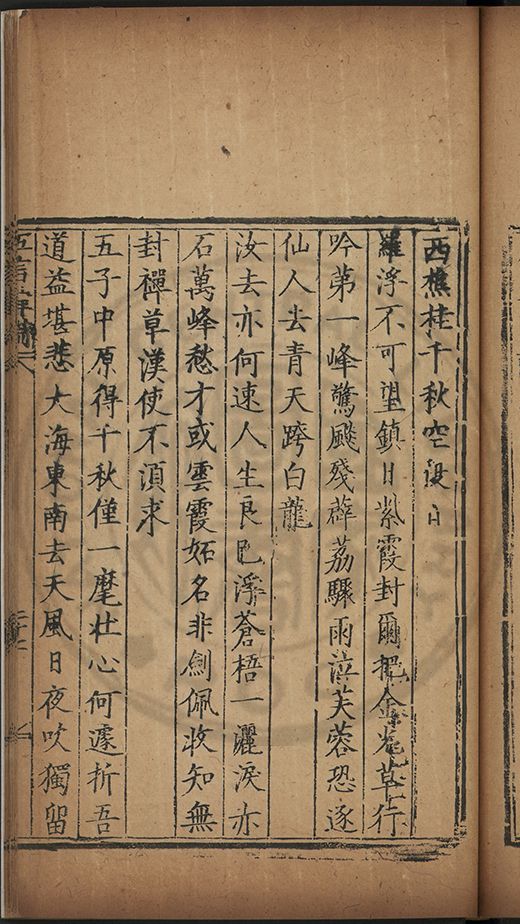 西樵桂千秋空没日
羅浮不可望鎮日紫霞封爾把金光草行
吟第一峰驚飈殘薜荔驟雨泣芙蓉恐逐
仙人去青天跨白龍
汝去亦何速人生良已浮蒼梧一灑淚亦
石萬峰愁才或雲霞妬名非劍佩收知無
封禪草漢使不湏求
五子中原得千秋僅一麾壯心何遽折吾
道益堪悲大海東南去天風日夜吹獨留